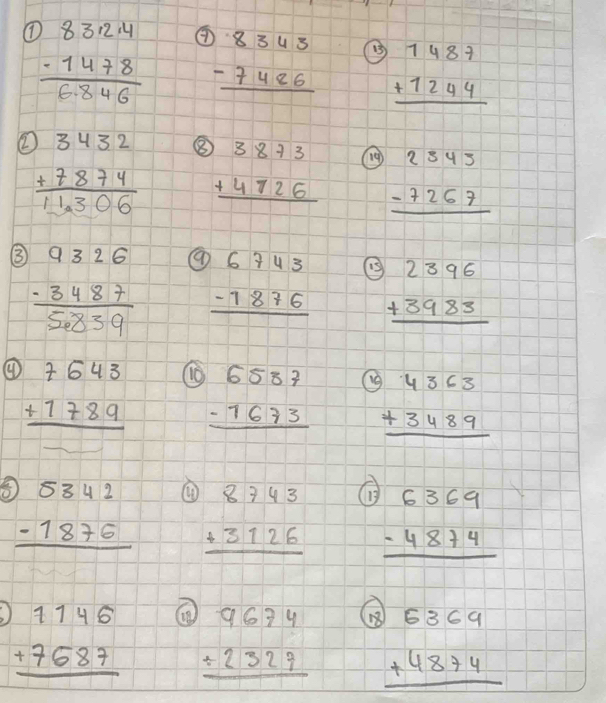 ① 8324
- 1478
6.846
② 3432
+ 7874
11.306
③ 9326
- 3487
5.839
④ 7643
+ 1789
⑤ 5342
- 1876
1146
+ 7687
⑦ 8343
- 7486
⑧ 3873
+ 4126
⑨ 6743
- 1876
⑩ 6587
- 1673
⑪ 8743
+ 3126
⑫ 9674
+ 2327
⑬ 1487
+ 1244
⑭ 2343
- 7267
⑮ 2396
+ 3983
⑯ 4363
+ 3489
⑰ 6369
- 4874
⑱ 6369
+ 4874